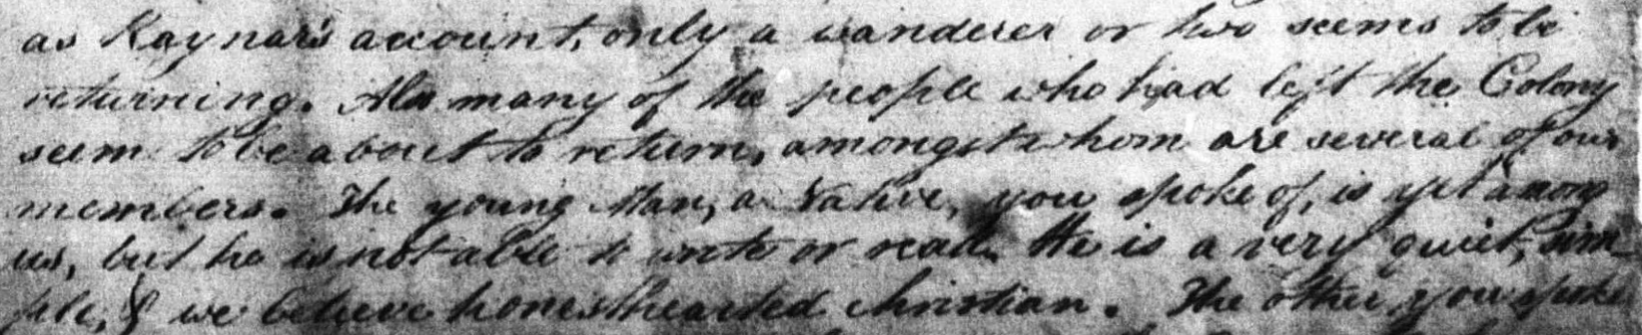 as Raynar's account, only a wanderer or two seems to be
returning. Also many of the people who had left the Colony
seem to be about to return, amongst whom are several of our
members. The young Man, a Native, you spoke of, is yet among
us, but he is not able to write or read. He is a very quiet, sim-
ple, & we believe honesthearted christian. The other, you spoke